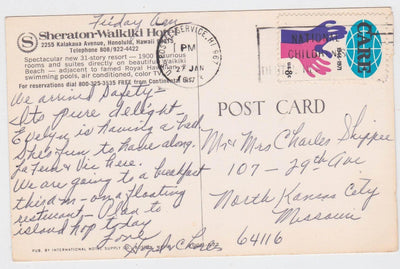 Friday a.m.
Sheraton-Waikiki Hotel
2255 Kalakaua Avenue, Honolulu, Hawaii
Telephone 808/922-4422
Spectacular new 31-story resort - 1900 luxurious
rooms and suites directly on beautiful Waikiki
Beach — adjacent to famed Royal Hawaiian
swimming pools, air conditioned, color TV
For reservations dial 800-325-3535 FREE from Continental U.S.
We arrived Safely -
Its pure delight -
Evelyn is having a ball
She's fun to have along.
La Fern & Vic there.
We are going to a breakfast
this a.m - on a floating
restaurant - Plan to
island hop today
Love
PUB. BY INTERNATIONAL HOTEL SUPPLY
POSTAL SERVICE, HI 967
PM
27 JAN
NATIONAL
CARE
8c
POST CARD
Mr & Mrs Charles Skippee
107 - 29th Ave
North Kansas City
Missouri
64116